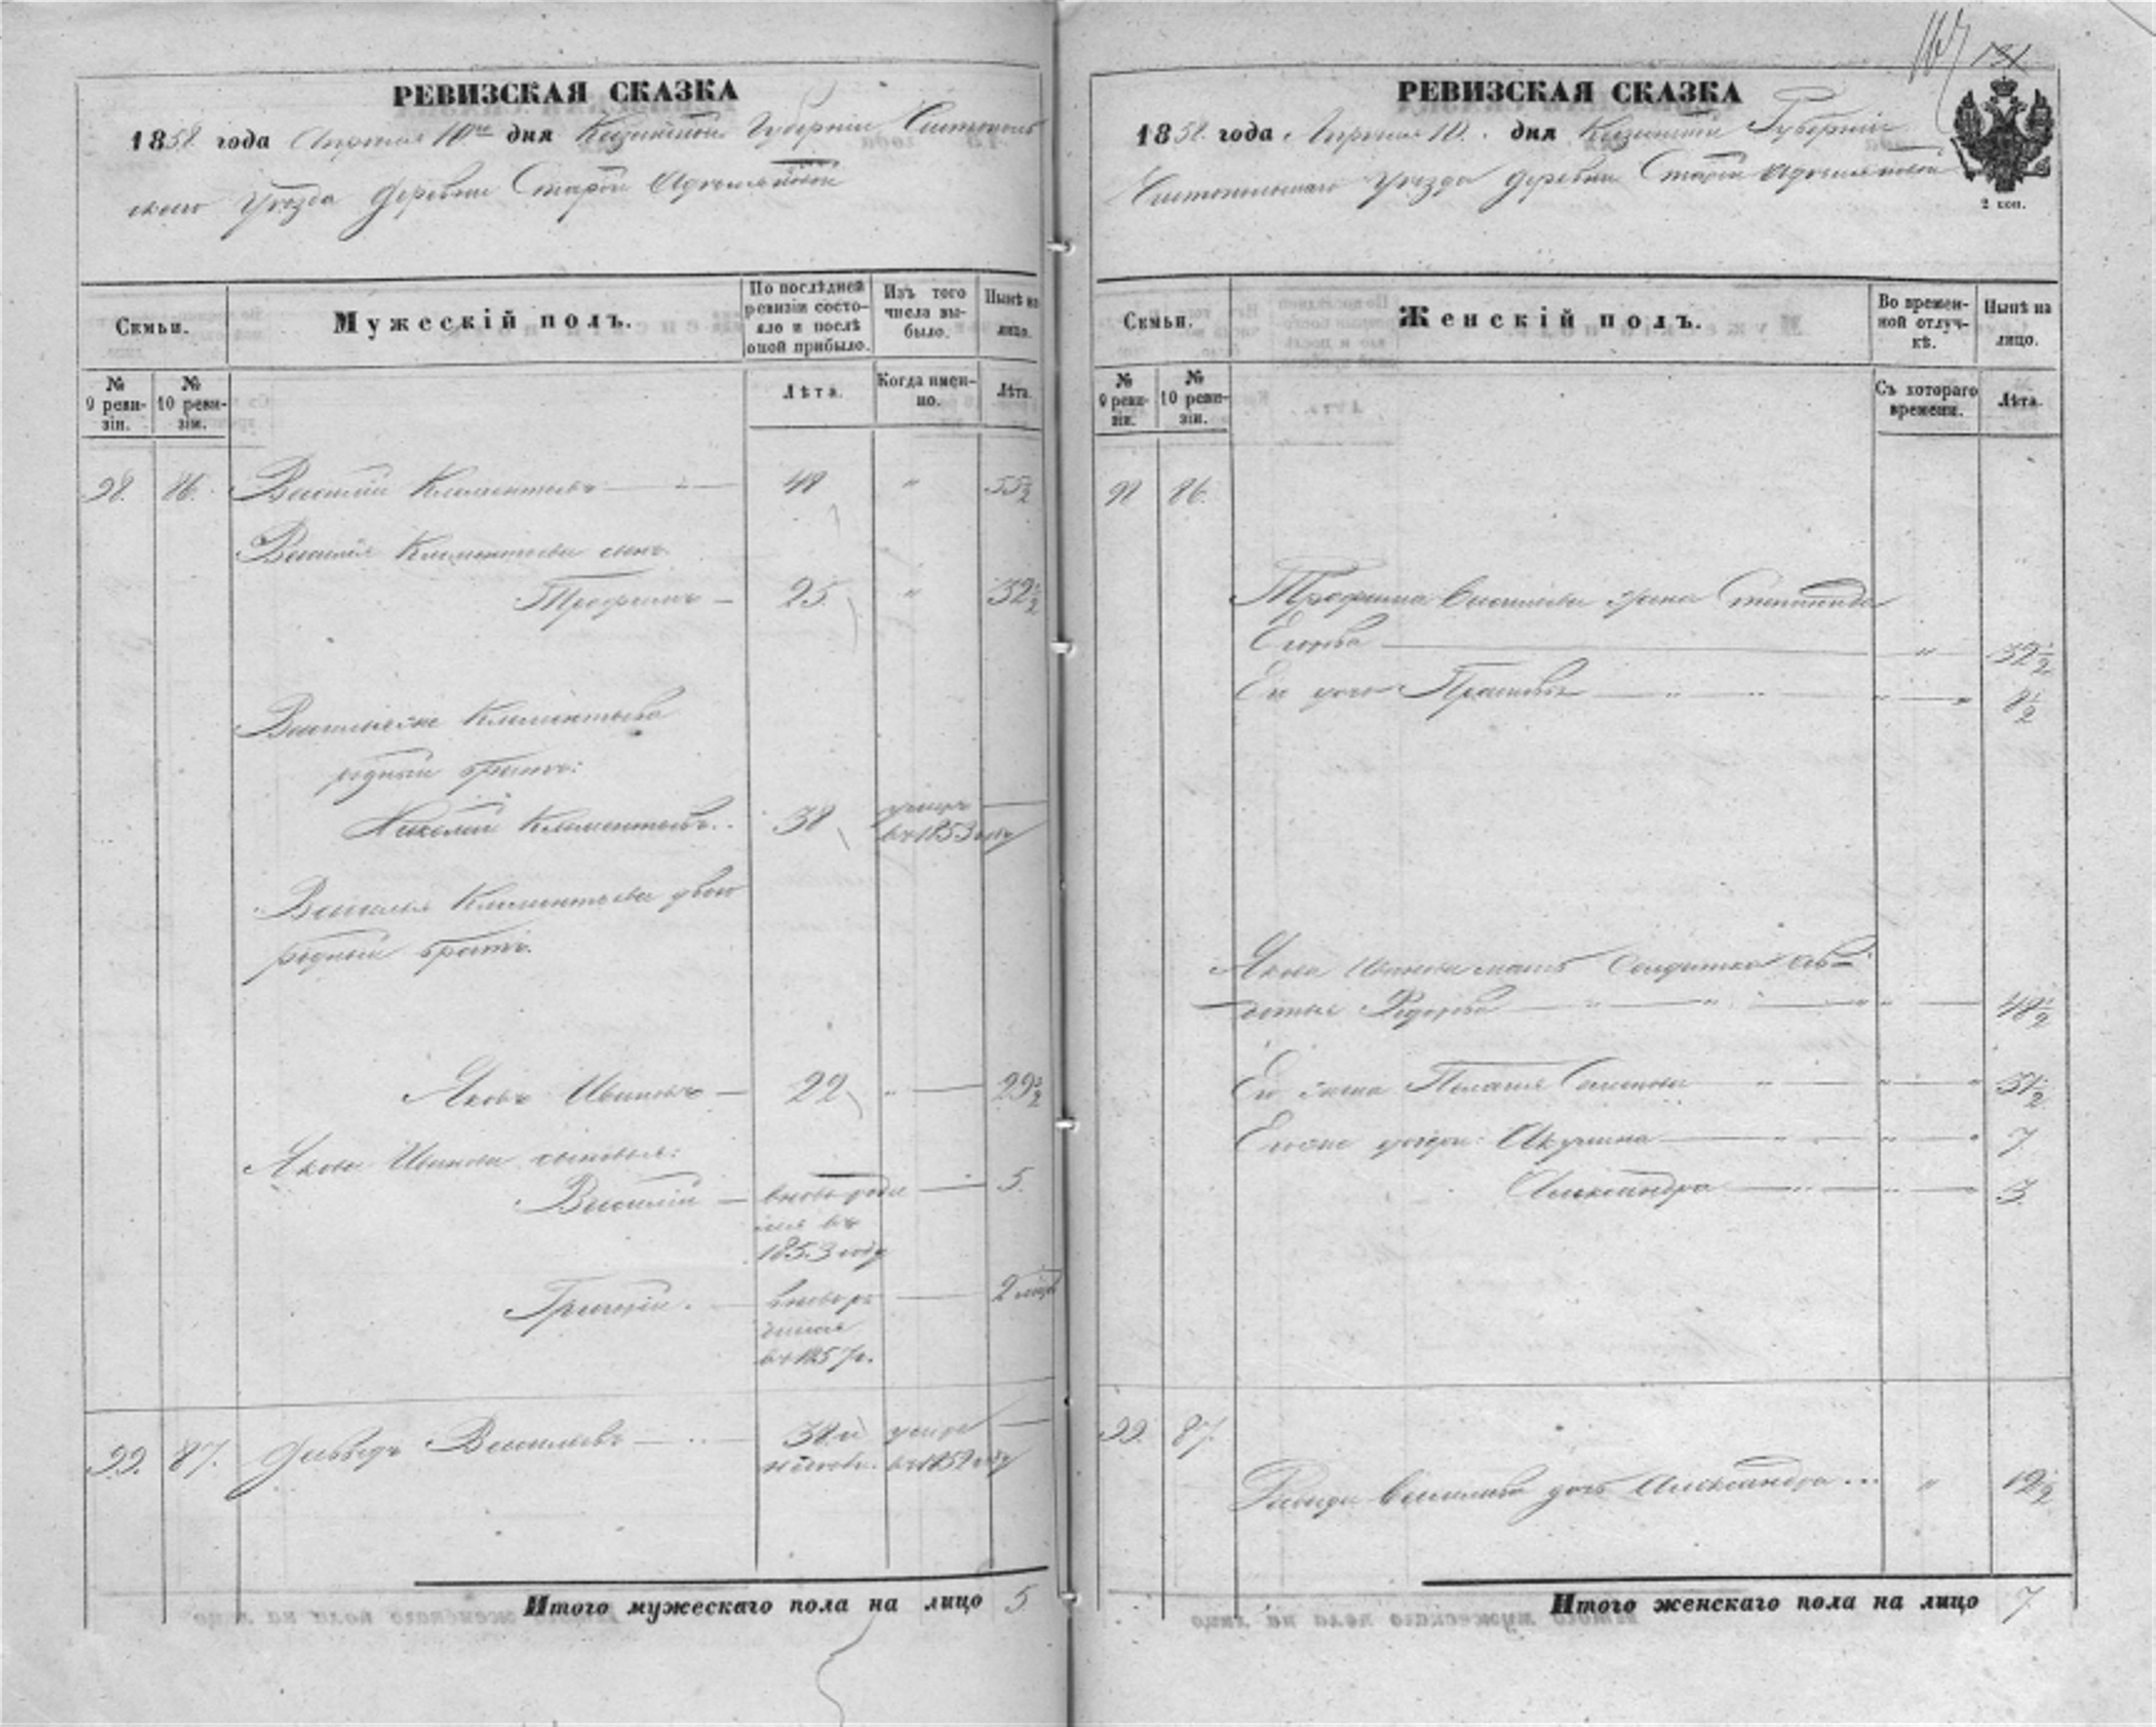 РЕВИЗСКАЯ СКАЗКА
1858 года Апреля 10го дня Казанской Губернии Чистополь
скаго Уезда Деревни Старой
Семьи.
Мужескій полъ.
По послѣдней ревизіи состояло и послѣ оной прибыло.
Изъ того числа выбыло.
Нынѣ на лицо.
№ 9 ревизіи.
№ 10 ревизіи.
Лѣта.
Когда именно.
Лѣта.
98. 86. Василий Климентьевъ 48 " 55½
Василья Климентьева сынъ
Трофимъ 25. " 32½
Климентьева
родный братъ:
Николай Климентьевъ 38 умеръ
въ 1853 году
Василья Климентьева двою
родный братъ.
Яковъ Ивановъ 22 " 29½
Якова Иванова сыновья:
Василий вновь роди 5.
лся въ
1853 году
Григорій. вновь ро
дился
въ 1857 г.
99. 87. Давыдъ Васильевъ 38 умеръ
въ 1852 году
Итого мужескаго пола на лицо 5
РЕВИЗСКАЯ СКАЗКА
1858 года Апреля 10 дня Казанской Губернии
Чистопольскаго Уезда Деревни Старой
2 коп.
Семьи.
Женскій полъ.
Во временной отлучкѣ.
Нынѣ на лицо.
№ 9 ревизіи.
№ 10 ревизіи.
Съ котораго времени.
Лѣта.
98 86.
Трофима Васильева жена Степанида
Егорова " 32½
Ея дочь Прасковья " 8½
Якова Иванова мать Солдатка Ав
дотья Федорова 48½
Его жена Пелагея Семенова 31½
Его же дочери: Акулина 7
Александра 3
99. 87.
Васильева дочь Александра " 12½
Итого женскаго пола на лицо 7